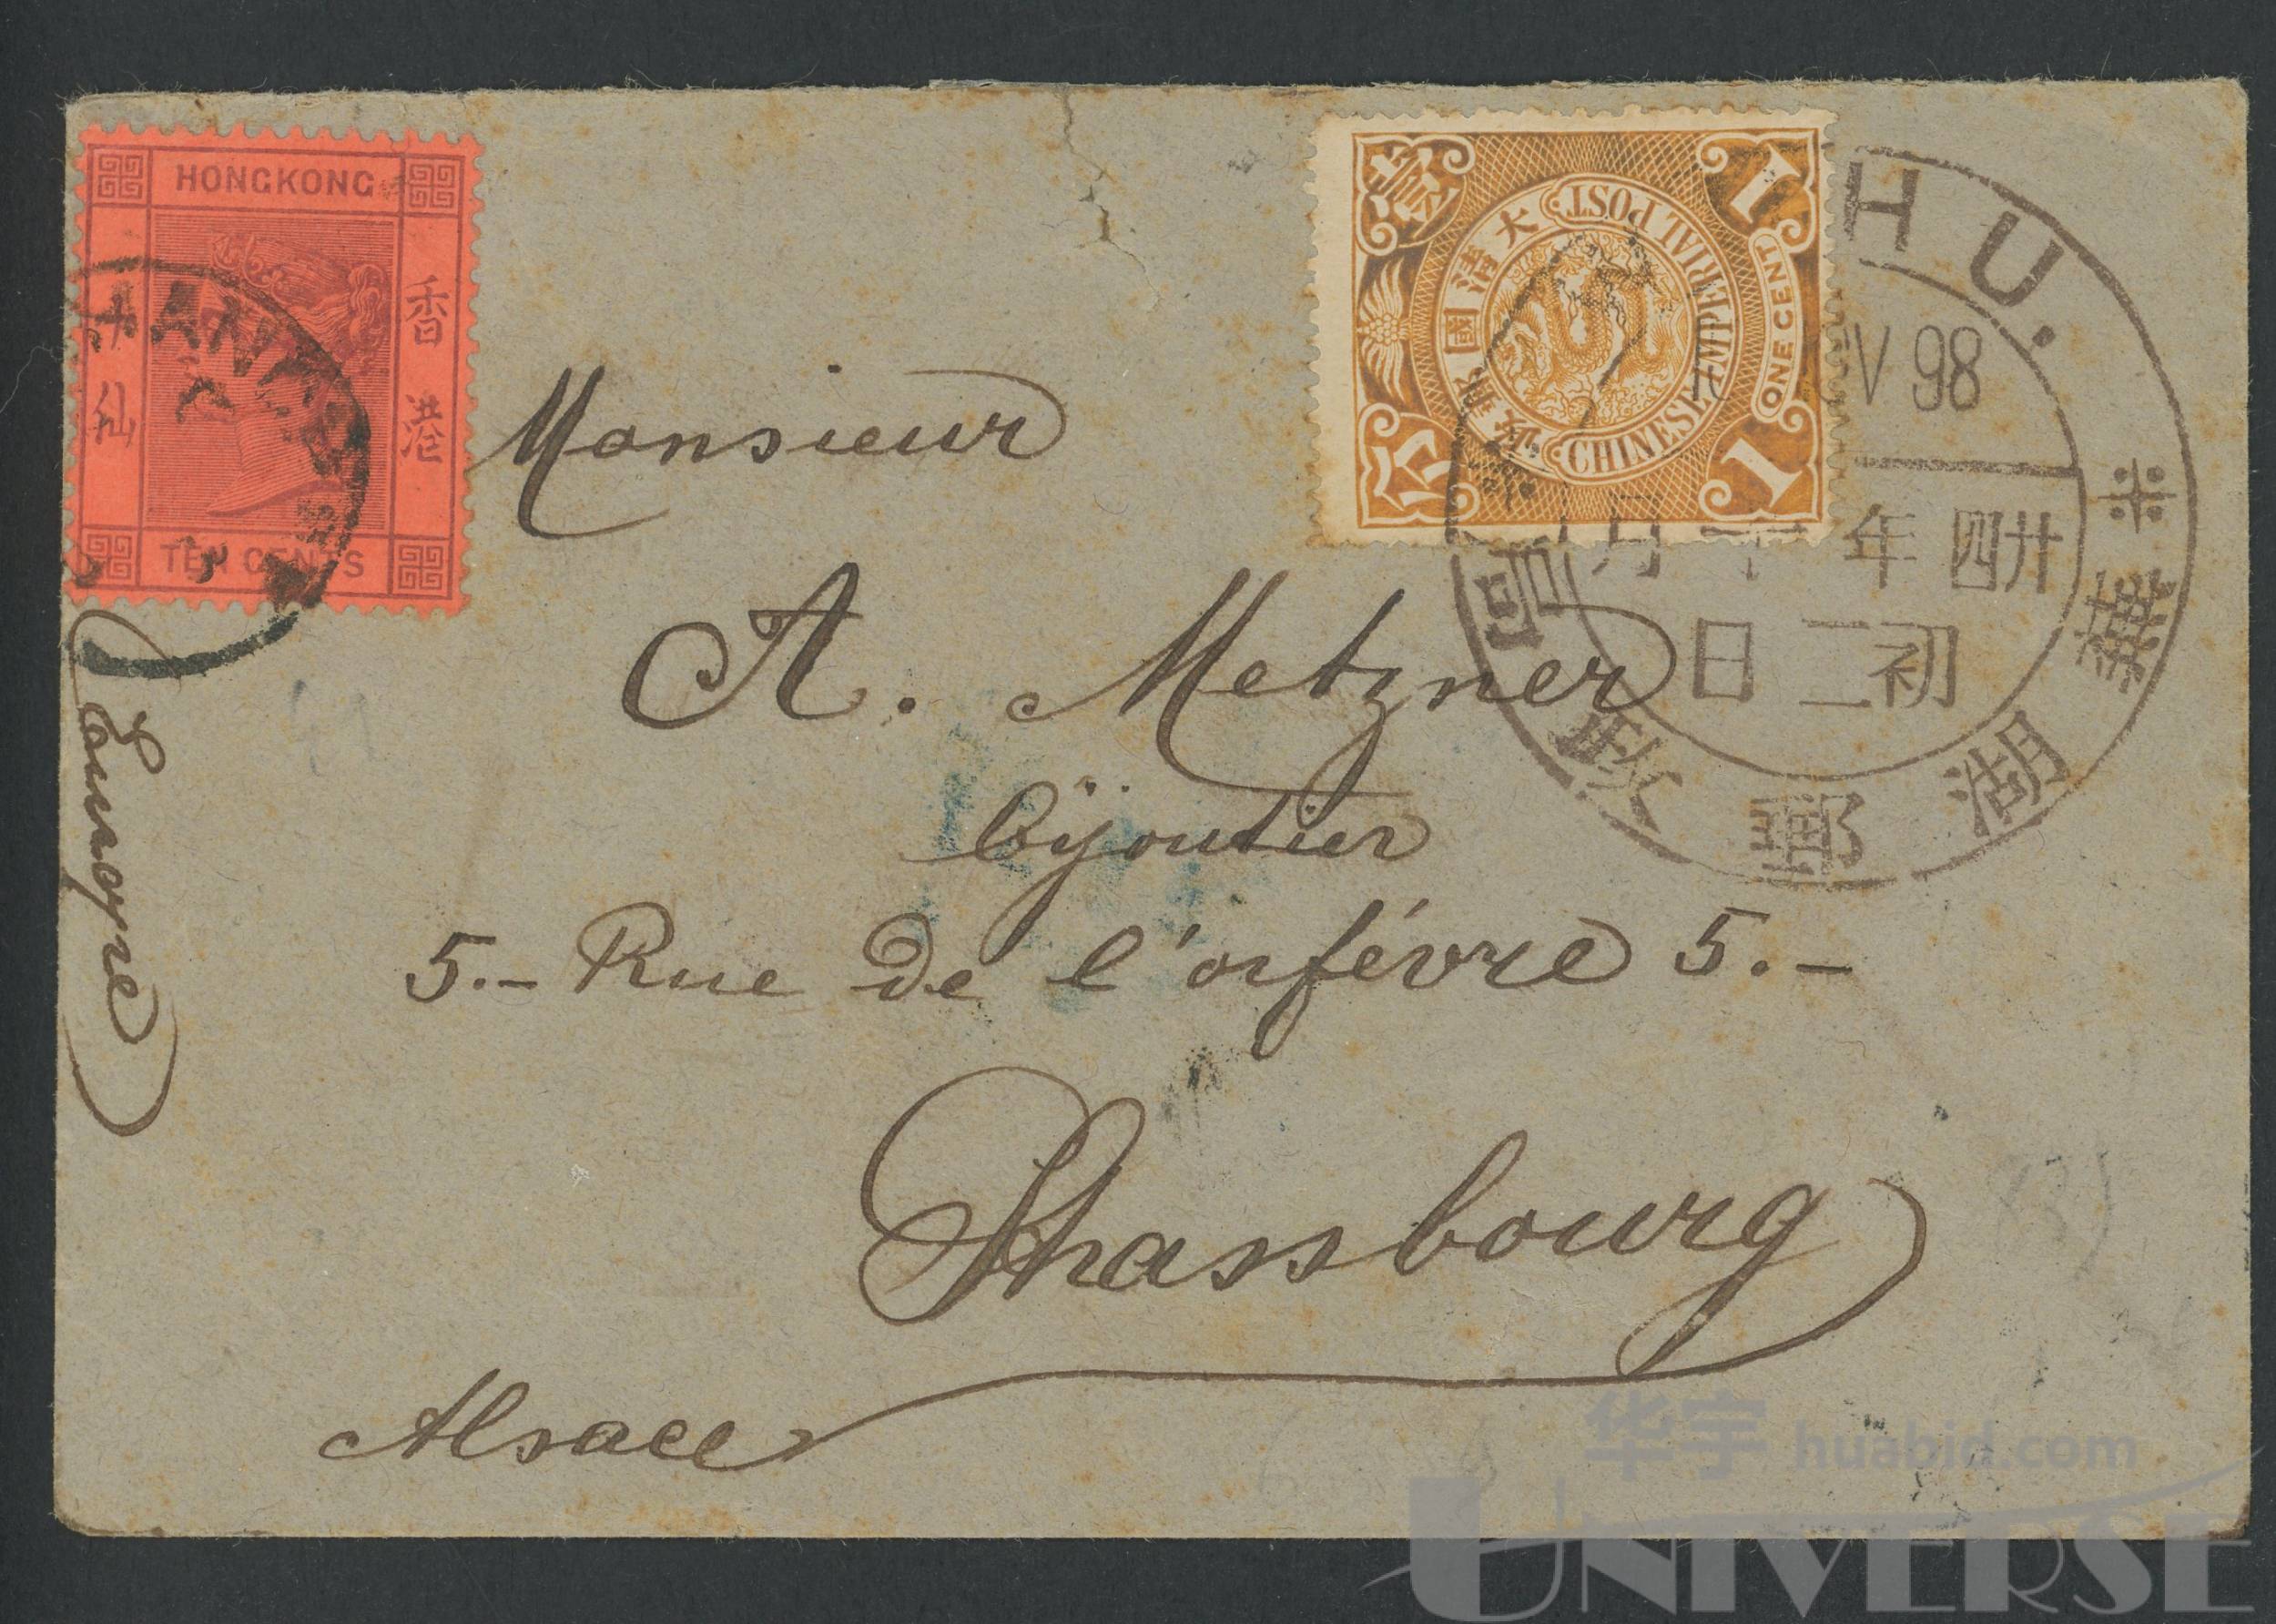 HONGKONG
香港
十仙
TEN CENTS
壹分
1
ONE CENT
1
大清國郵政
CHINESE IMPERIAL POST
HU.
V 98
廿四年十一月
初二日
蕪湖郵政司
Monsieur
A. Metzner
bijoutier
5.- Rue de l'orfévre 5.-
Strassbourg
Alsace
Europe
华宇 huabid.com
UNIVERSE